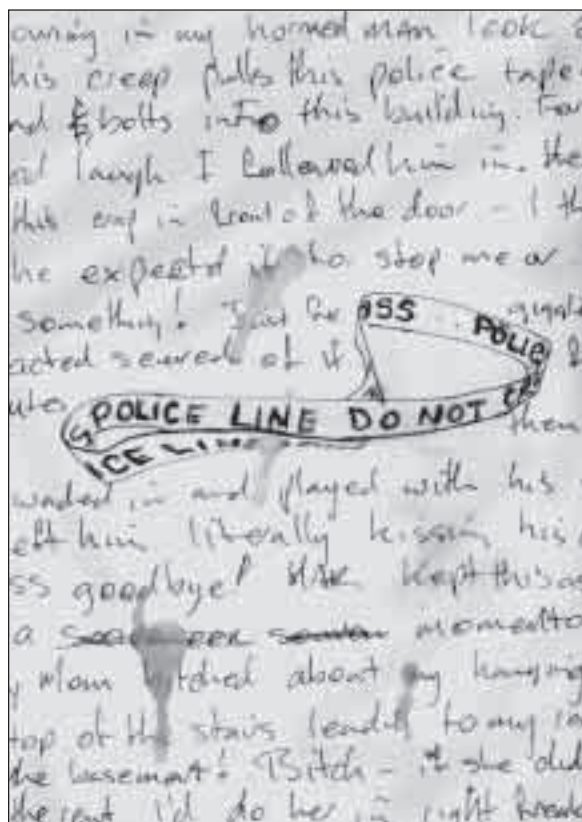 owing in my horned man look
his creep pulls this police tape
nd bolts into this building. For
ed laugh I followed him in. the
this crap in front of the door - I th
he expected it to stop me or
something! Just for giggle
acted scared of it
uto
ASS POLIC
POLICE LINE DO NOT CR
ICE LINE
them
waded in and played with his
eft him literally kissing his
ss goodbye! HAR kept this as
a momento
y Mom bitched about my hanging
top of the stairs leadin to my
the basement! Bitch - if she did
the rent I'd do her in right